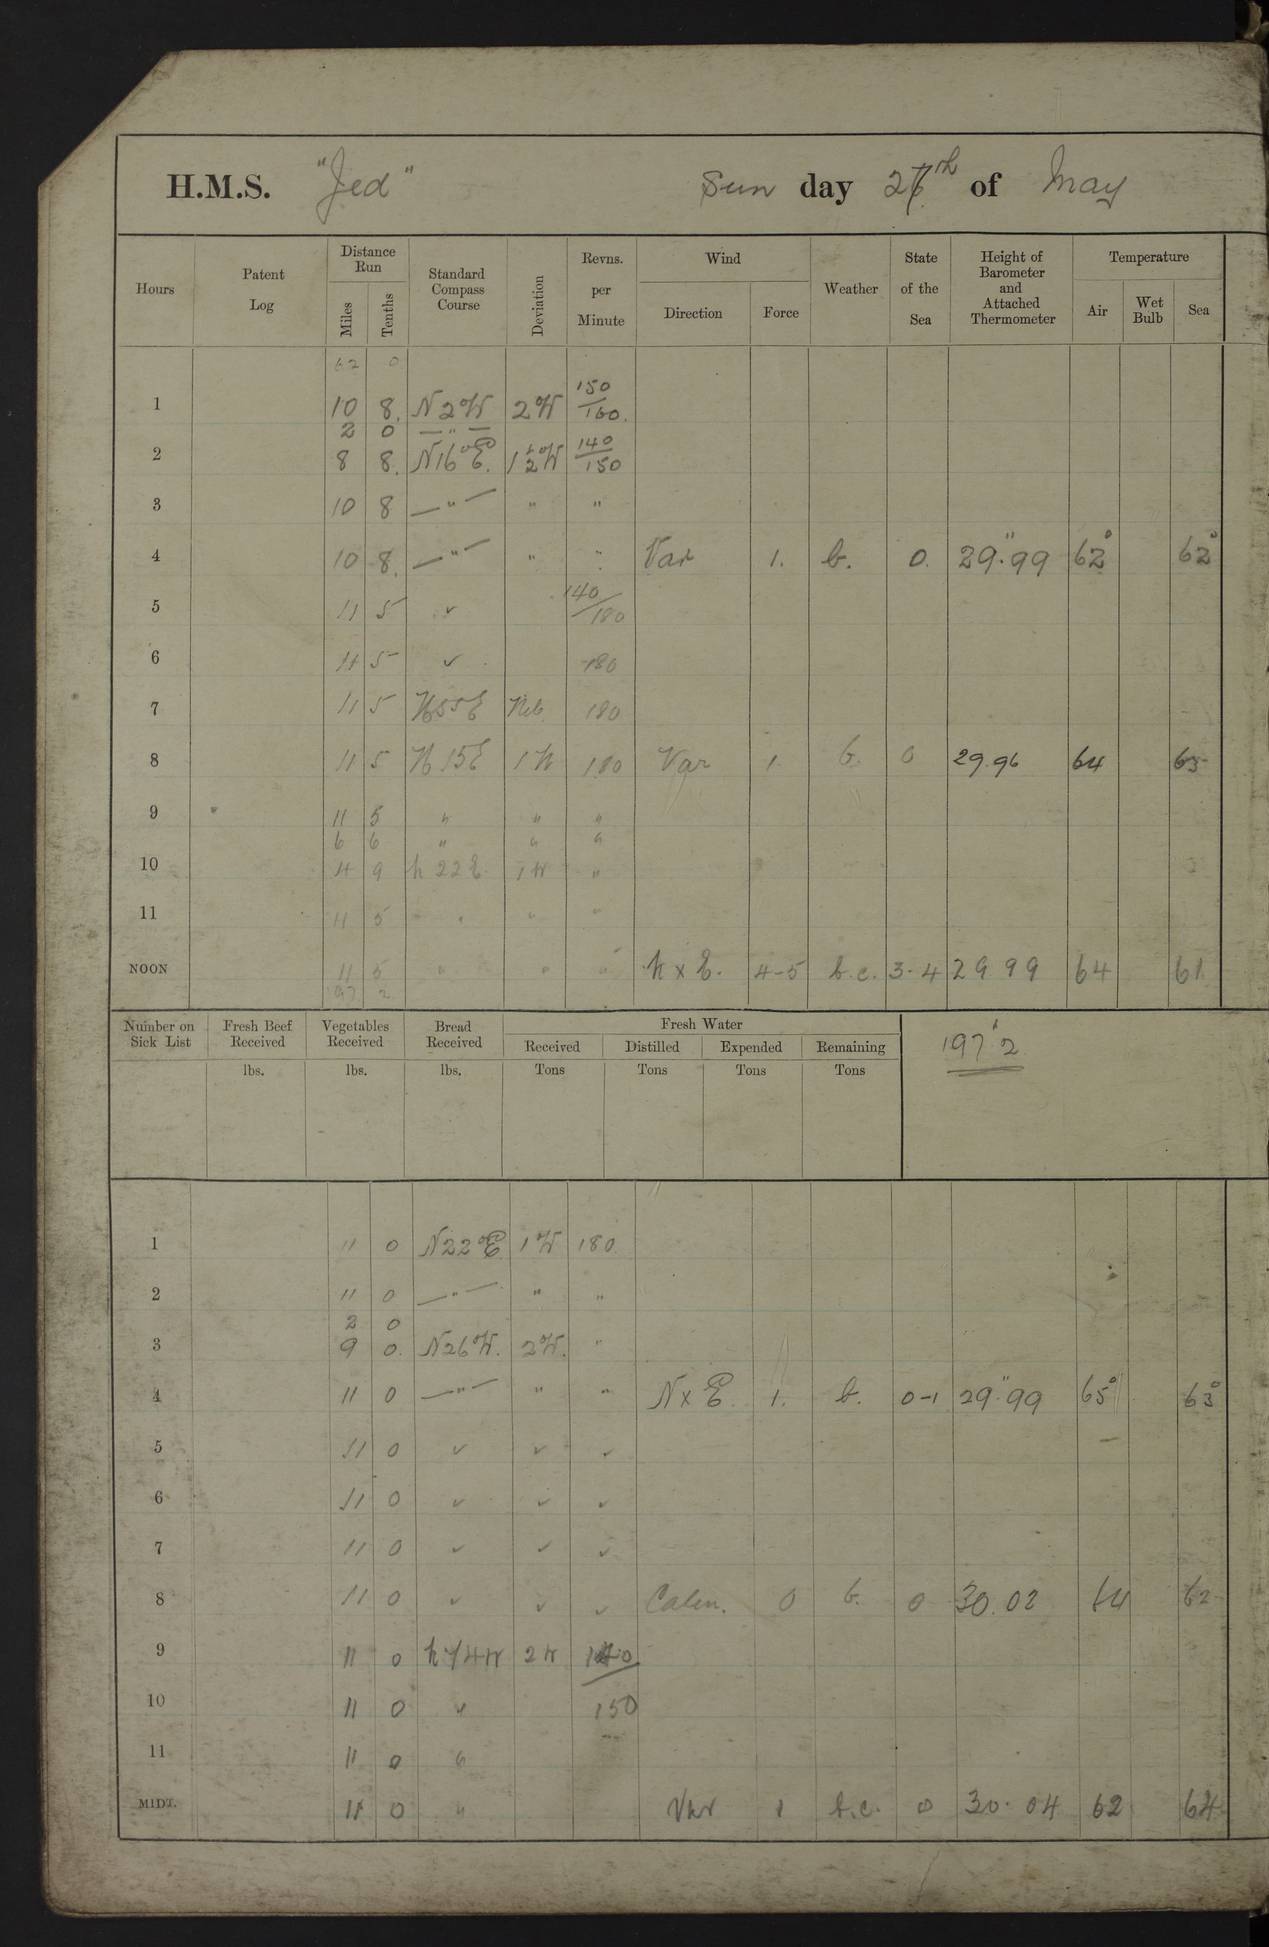 H.M.S. "Jed" Sun day 27th of May
Hours Patent Log Distance Run Miles Tenths Standard Compass Course Deviation Revns. per Minute Wind Direction Force Weather State of the Sea Height of Barometer and Attached Thermometer Temperature Air Wet Bulb Sea
62 0
1 10 8. N 2 W 2 W 150/160.
2 0 — " —
2 8 8. N16°E. 1½°W 140/150
3 10 8 — " — " "
4 10 8. — " — " " Var 1. b. 0. 29.99 62° 62°
5 11 5 ✓ 140/180
6 11 5 ✓ 180
7 11 5 N55E 180
8 11 5 N 15E 1 W 180 Var 1. b. 0 29.96 64 63
9 11 5 " " "
6 6 " " "
10 4 9 N 22 E 1 W "
11 11 5 " " "
NOON 11 5 " " " N x E. 4-5 b.c. 3-4 29 99 64 61
197 2
Number on Sick List Fresh Beef Received Vegetables Received Bread Received Fresh Water Received Distilled Expended Remaining
lbs. lbs. lbs. Tons Tons Tons Tons
197.2
1 11 0 N22°E 1 W 180
2 11 0 — " — " "
2 0
3 9 0. N26W. 2W. "
4 11 0 — " — " " N x E. 1. b. 0-1 29.99 65° 63°
5 11 0 ✓ ✓ ✓
6 11 0 ✓ ✓ ✓
7 11 0 ✓ ✓ ✓
8 11 0 ✓ ✓ ✓ Calm. 0 b. 0 30.02 64 62
9 11 0 N 74 W 2 W 140
10 11 0 ✓ 150
11 11 0 "
MIDT. 11 0 " Var 1 b.c. 0 30.04 62 64